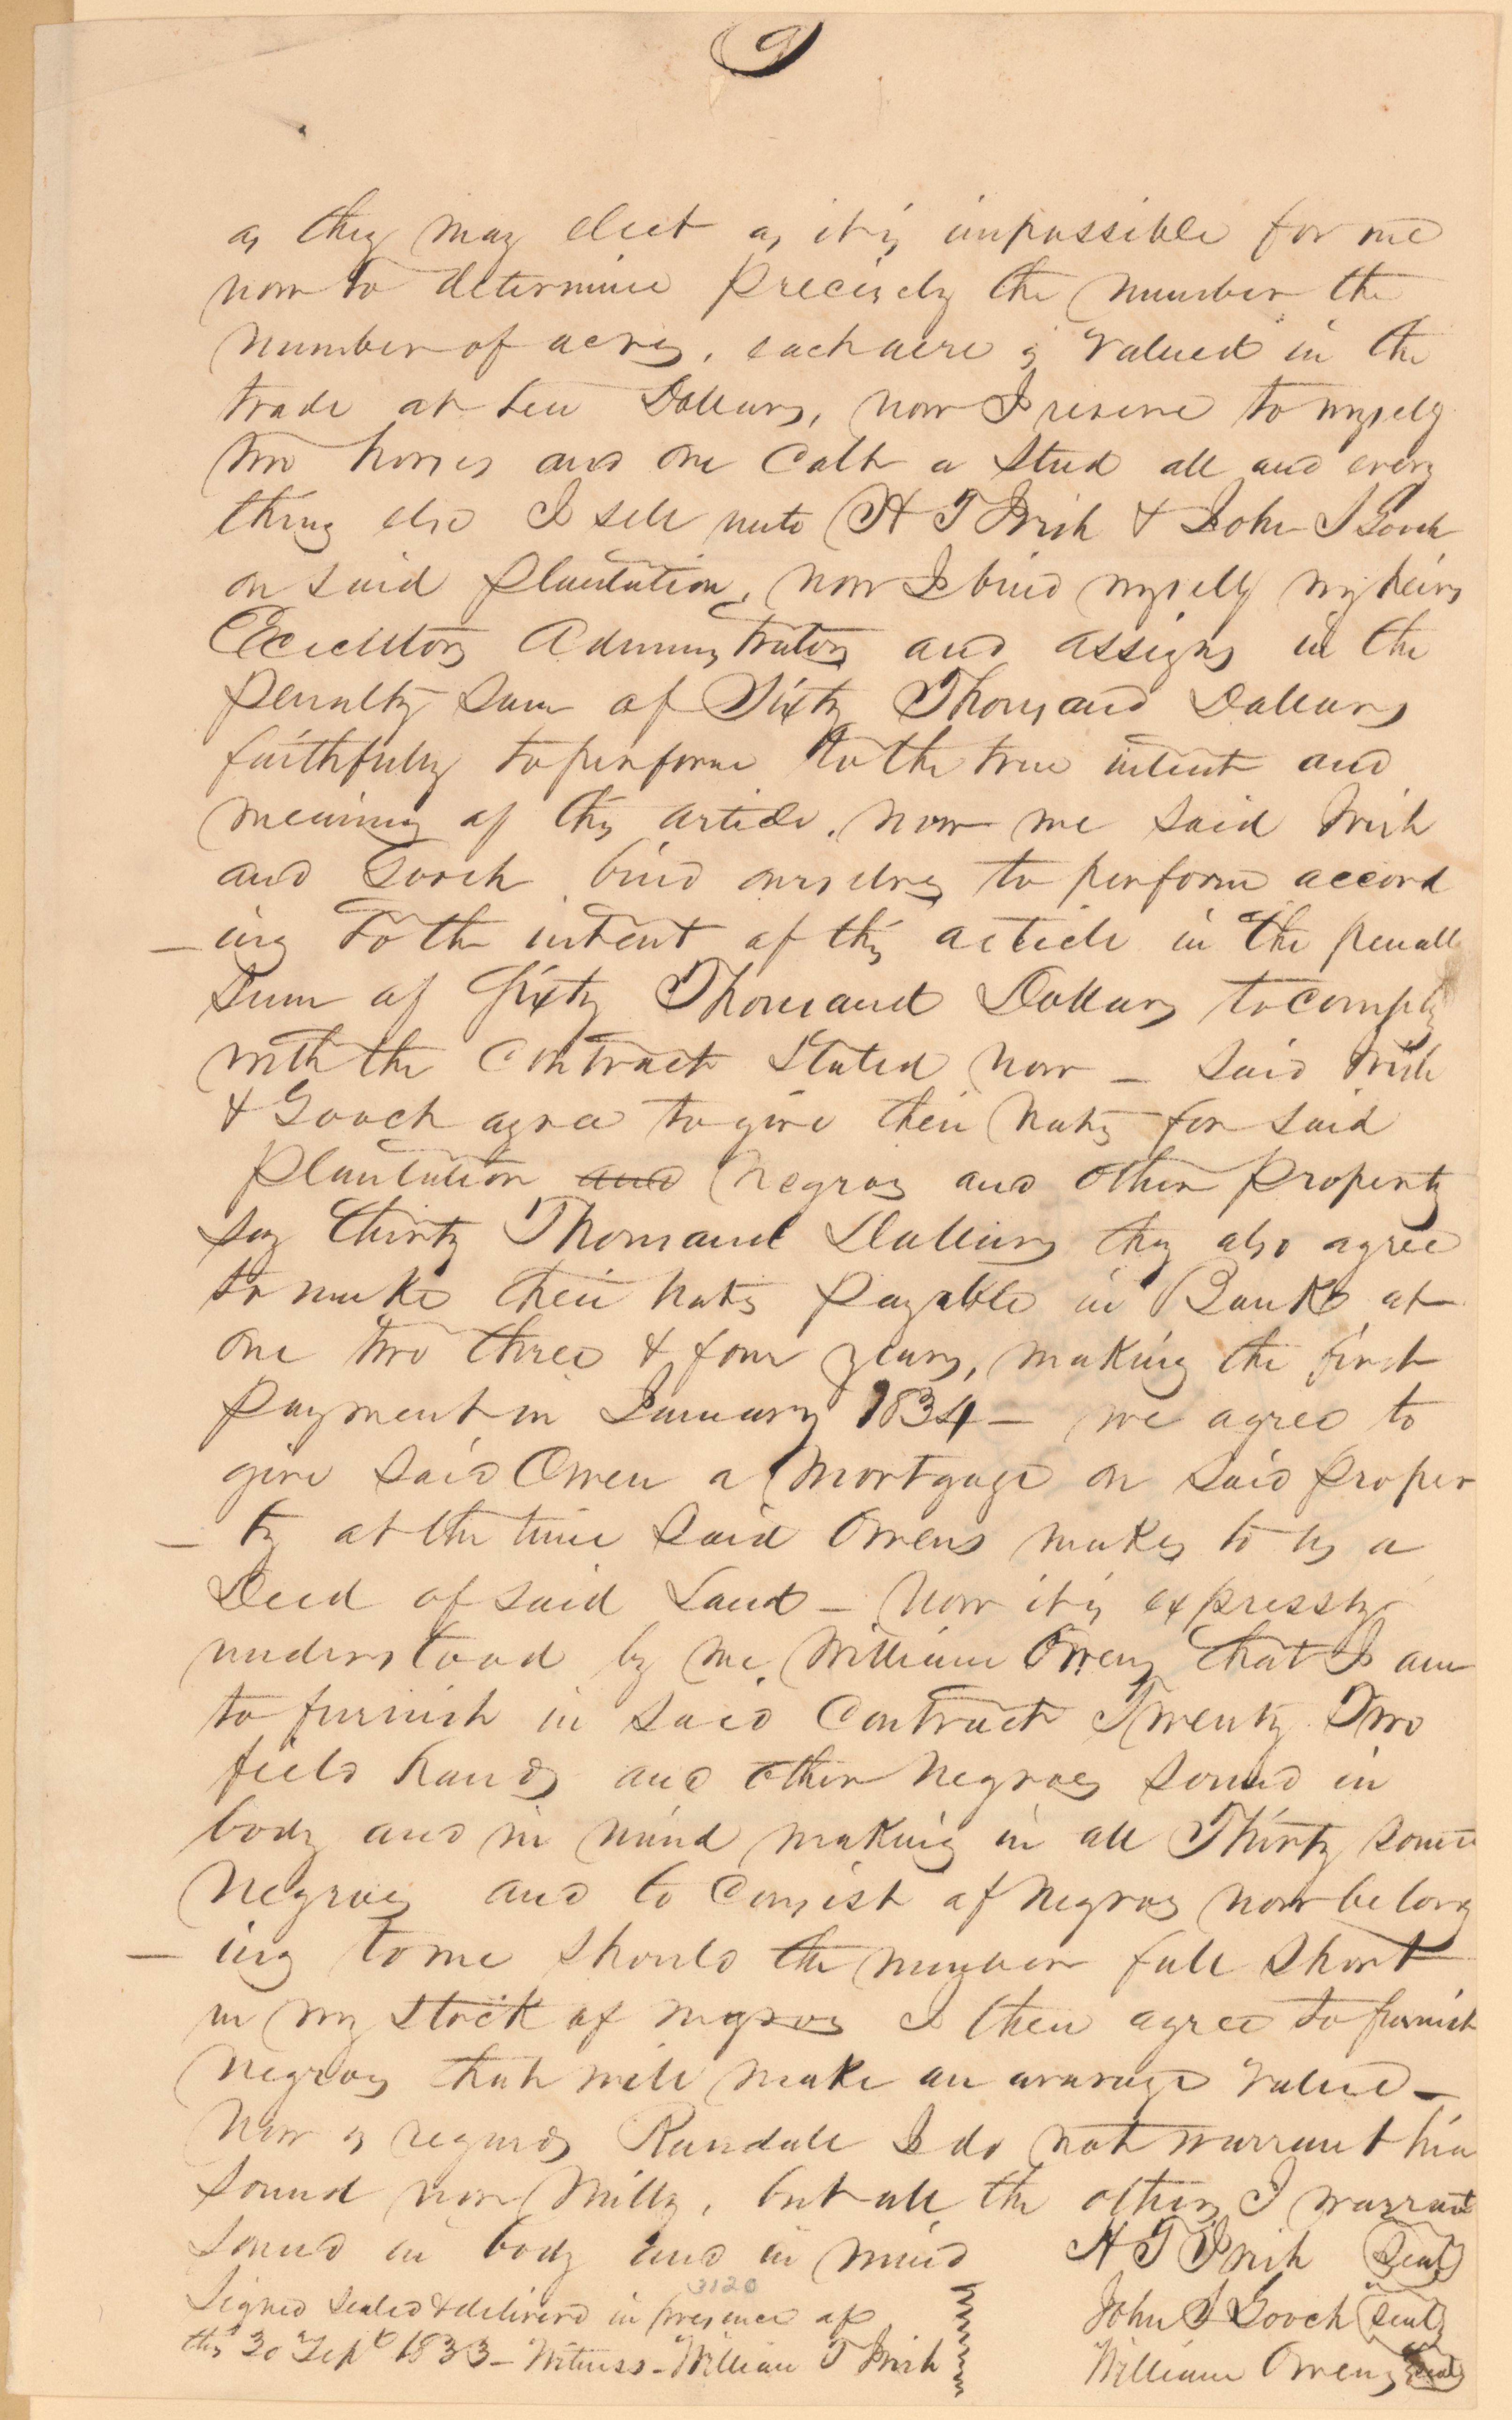 2
as they may elect as it is impossible for me
now to determine precisely the number the
number of acres, each acre is valued in the
trade at ten Dollars, now I reserve to myself
two horses and one Colt a Stud all and every
thing else I sell unto H T Irish & John S Gooch
on said Plantation, now I bind myself my heirs
Executors Administrators and assigns in the
penalty Sum of Sixty Thousand Dollars
faithfully to perform to the true intent and
meaning of this article. now we said Irish
and Gooch bind ourselves to perform accord
– ing to the intent of this article in the penall
Sum of Sixty Thousand Dollars to comply
with the Contract Stated now – Said Irish
& Gooch agree to give their Notes for said
Plantation and Negros and other property
say thirty Thousand Dollars they also agree
to make their notes payable in Bank at
one two three & four years, making the first
payment in January 1834 – we agree to
give said Owen a Mortgage on said proper
– ty at the time said Owens makes to us a
Deed of said Land – Now it is expressly
understood by me William Owens that I am
to furnish in said Contract Twenty Two
field hands and other Negroes sound in
body and in mind making in all Thirty some
Negroes and to Consist of Negros now belong
– ing to me should the number fall short
in my stock of negros I then agree to furnish
Negros that will make an avarage value –
Now as regards Randall I do not warrant him
Sound nor Milly, but all the others I warrant
Sound in body and in mind H T Irish Seal
3120
Signed sealed & delivered in presence of John S Gooch Seal
this 30 Sept 1833 – Witness – William T Irish William Owens Seal